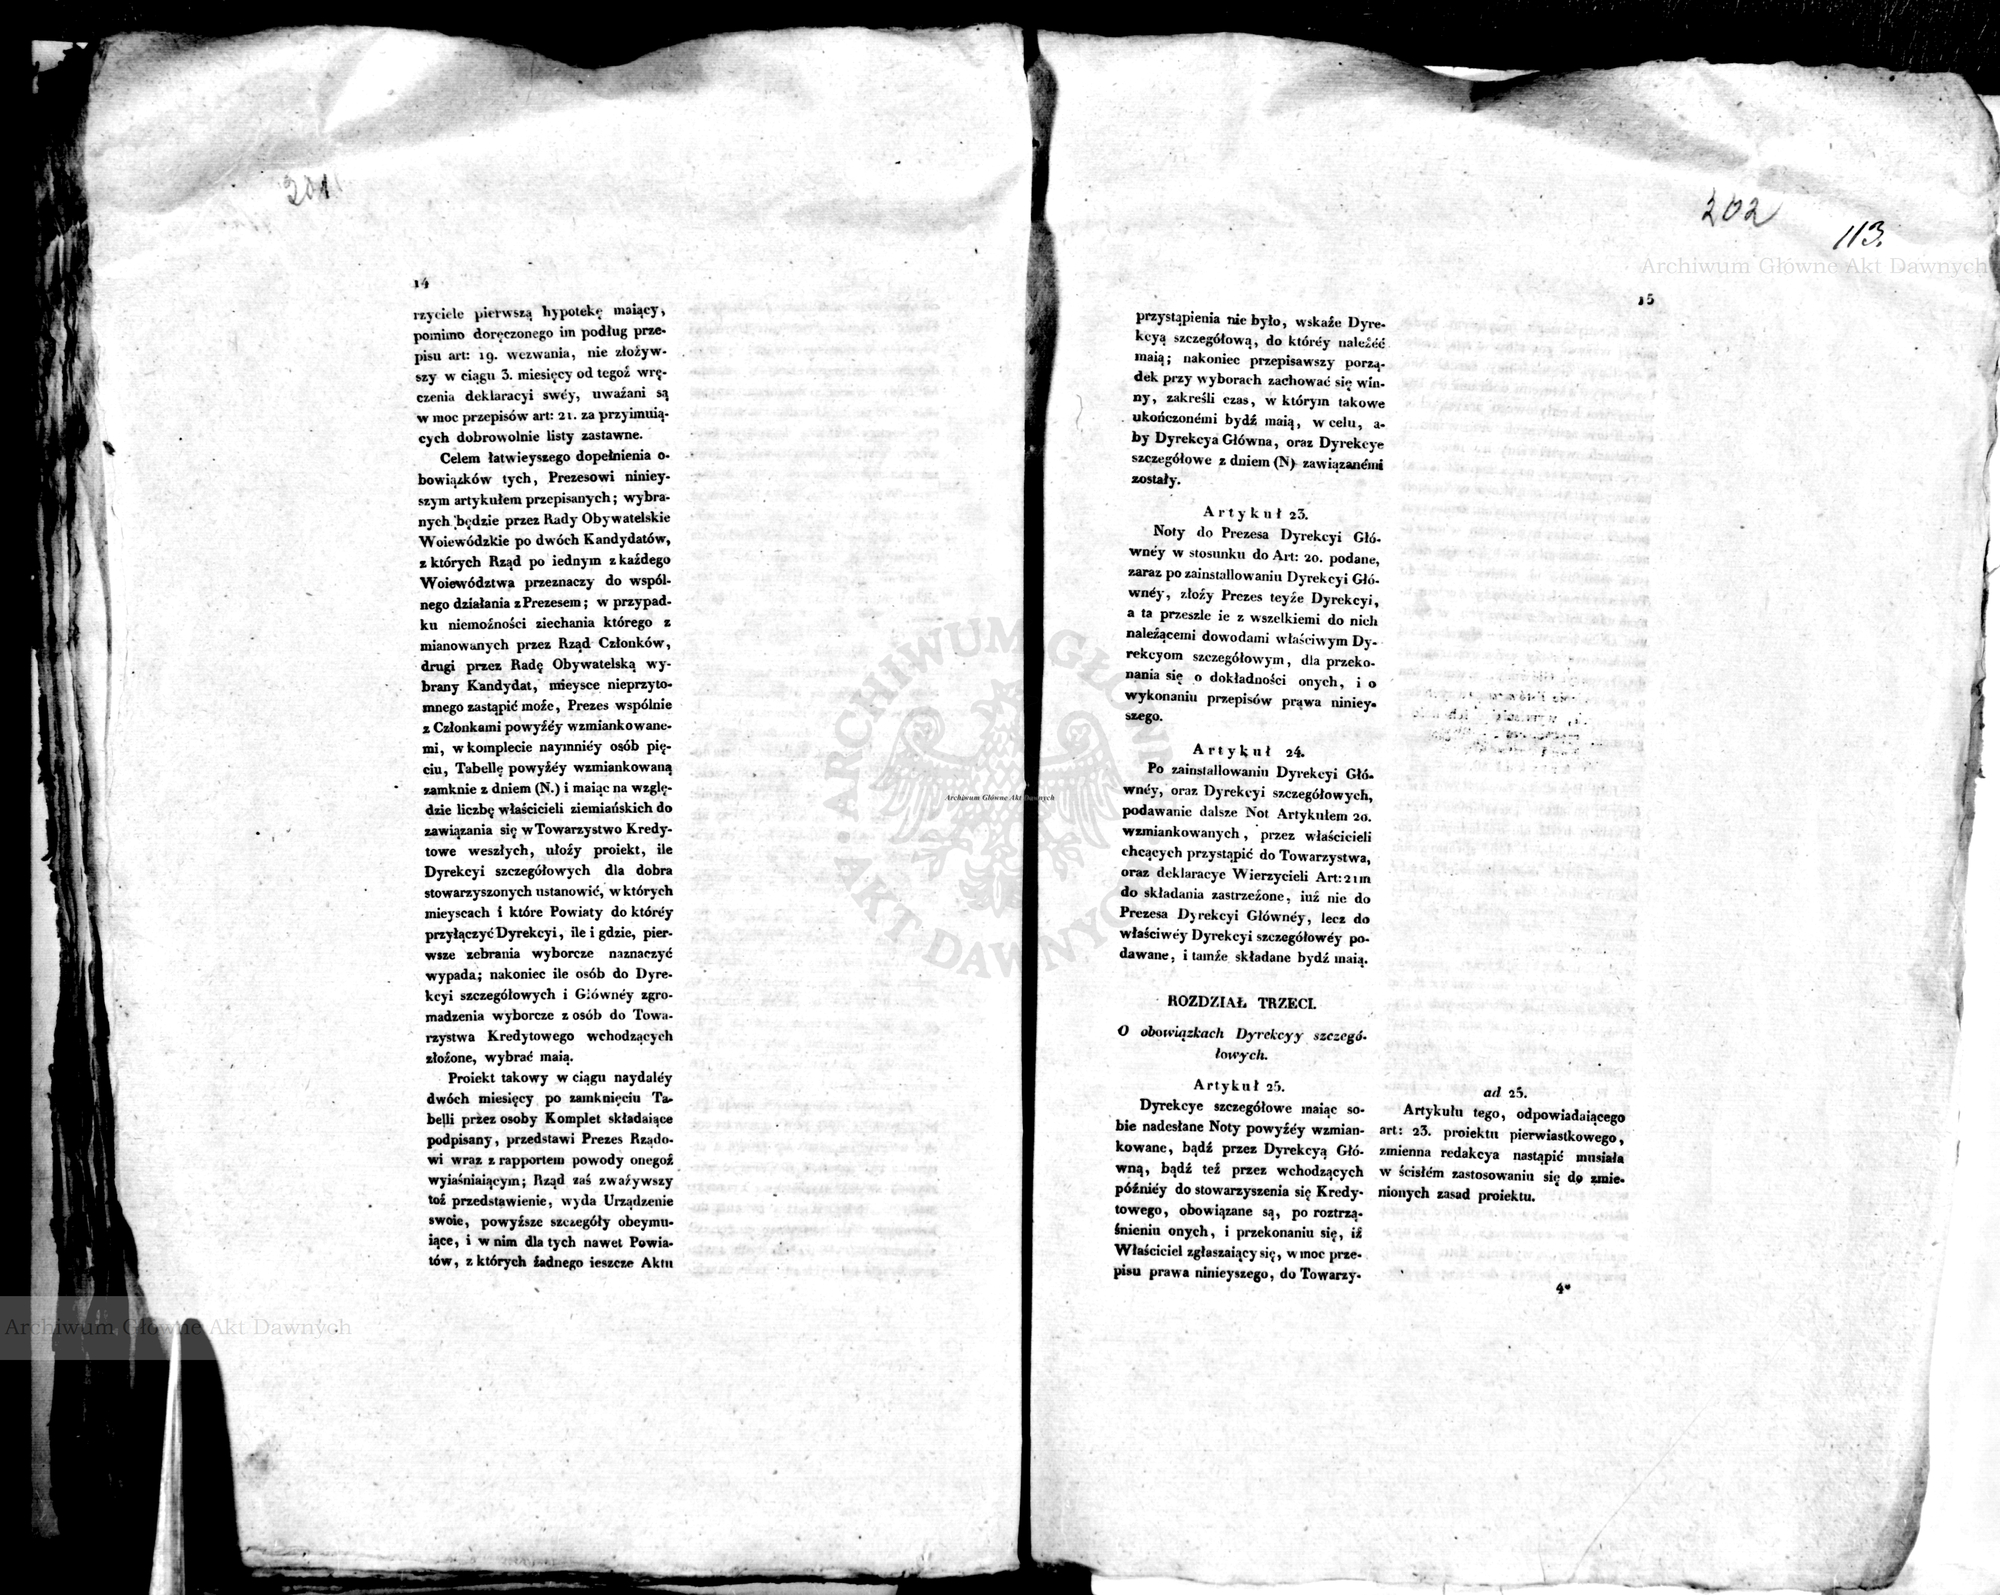 201
14
rzyciele pierwszą hypotekę maiący,
pomimo doręczonego im podług prze-
pisu art: 19. wezwania, nie złożyw-
szy w ciągu 3. miesięcy od tegoź wrę-
czenia deklaracyi swéy, uważani są
w moc przepisów art: 21. za przyimuią-
cych dobrowolnie listy zastawne.
Celem łatwieyszego dopełnienia o-
bowiązków tych, Prezesowi niniey-
szym artykułem przepisanych; wybra-
nych będzie przez Rady Obywatelskie
Woiewódzkie po dwóch Kandydatów,
z których Rząd po iednym z każdego
Woiewództwa przeznaczy do wspól-
nego działania z Prezesem; w przypad-
ku niemożności ziechania którego z
mianowanych przez Rząd Członków,
drugi przez Radę Obywatelską wy-
brany Kandydat, mieysce nieprzyto-
mnego zastąpić może, Prezes wspólnie
z Członkami powyźéy wzmiankowane-
mi, w komplecie naymniéy osób pię-
ciu, Tabellę powyźéy wzmiankowaną
zamknie z dniem (N.) i maiąc na wzglę-
dzie liczbę właścicieli ziemiańskich do
zawiązania się w Towarzystwo Kredy-
towe weszłych, ułoży proiekt, ile
Dyrekcyi szczegółowych dla dobra
stowarzyszonych ustanowić, w których
mieyscach i które Powiaty do któréy
przyłączyć Dyrekcyi, ile i gdzie, pier-
wsze zebrania wyborcze naznaczyć
wypada; nakoniec ile osób do Dyre-
kcyi szczegółowych i Głównéy zgro-
madzenia wyborcze z osób do Towa-
rzystwa Kredytowego wchodzących
złożone, wybrać maią.
Proiekt takowy w ciągu naydaléy
dwóch miesięcy po zamknięciu Ta-
belli przez osoby Komplet składaiące
podpisany, przedstawi Prezes Rządo-
wi wraz z rapportem powody onegoź
wyiaśniaiącym; Rząd zaś zważywszy
toź przedstawienie, wyda Urządzenie
swoie, powyższe szczegóły obeymu-
iące, i w nim dla tych nawet Powia-
tów, z których żadnego ieszcze Aktu
202
113.
15
przystąpienia nie było, wskaże Dyre-
kcyą szczegółową, do któréy należéć
maią; nakoniec przepisawszy porzą-
dek przy wyborach zachować się win-
ny, zakreśli czas, w którym takowe
ukończonémi bydź maią, w celu, a-
by Dyrekcya Główna, oraz Dyrekcye
szczegółowe z dniem (N) zawiązanémi
zostały.
Artykuł 23.
Noty do Prezesa Dyrekcyi Głó-
wnéy w stosunku do Art: 20. podane,
zaraz po zainstallowaniu Dyrekcyi Głó-
wnéy, złoży Prezes teyże Dyrekcyi,
a ta przeszle ie z wszelkiemi do nich
należącemi dowodami właściwym Dy-
rekcyom szczegółowym, dla przeko-
nania się o dokładności onych, i o
wykonaniu przepisów prawa niniey-
szego.
Artykuł 24.
Po zainstallowaniu Dyrekcyi Głó-
wnéy, oraz Dyrekcyi szczegółowych,
podawanie dalsze Not Artykułem 20.
wzmiankowanych, przez właścicieli
chcących przystąpić do Towarzystwa,
oraz deklaracye Wierzycieli Art: 21m
do składania zastrzeżone, iuż nie do
Prezesa Dyrekcyi Głównéy, lecz do
właściwéy Dyrekcyi szczegółowéy po-
dawane, i tamże składane bydź maią.
ROZDZIAŁ TRZECI.
O obowiązkach Dyrekcyy szczegó-
łowych.
Artykuł 25.
Dyrekcye szczegółowe maiąc so-
bie nadesłane Noty powyźéy wzmian-
kowane, bądź przez Dyrekcyą Głó-
wną, bądź też przez wchodzących
późniéy do stowarzyszenia się Kredy-
towego, obowiązane są, po roztrzą-
śnieniu onych, i przekonaniu się, iż
Właściciel zgłaszaiący się, w moc prze-
pisu prawa ninieyszego, do Towarzy-
ad 25.
Artykułu tego, odpowiadaiącego
art: 23. proiektu pierwiastkowego,
zmienna redakcya nastąpić musiała
w ścisłém zastosowaniu się do zmie-
nionych zasad proiektu.
4*
Archiwum Główne Akt Dawnych
Archiwum Główne Akt Dawnych
Archiwum Główne Akt Dawnych
ARCHIWUM GŁÓWNE AKT DAWNYCH